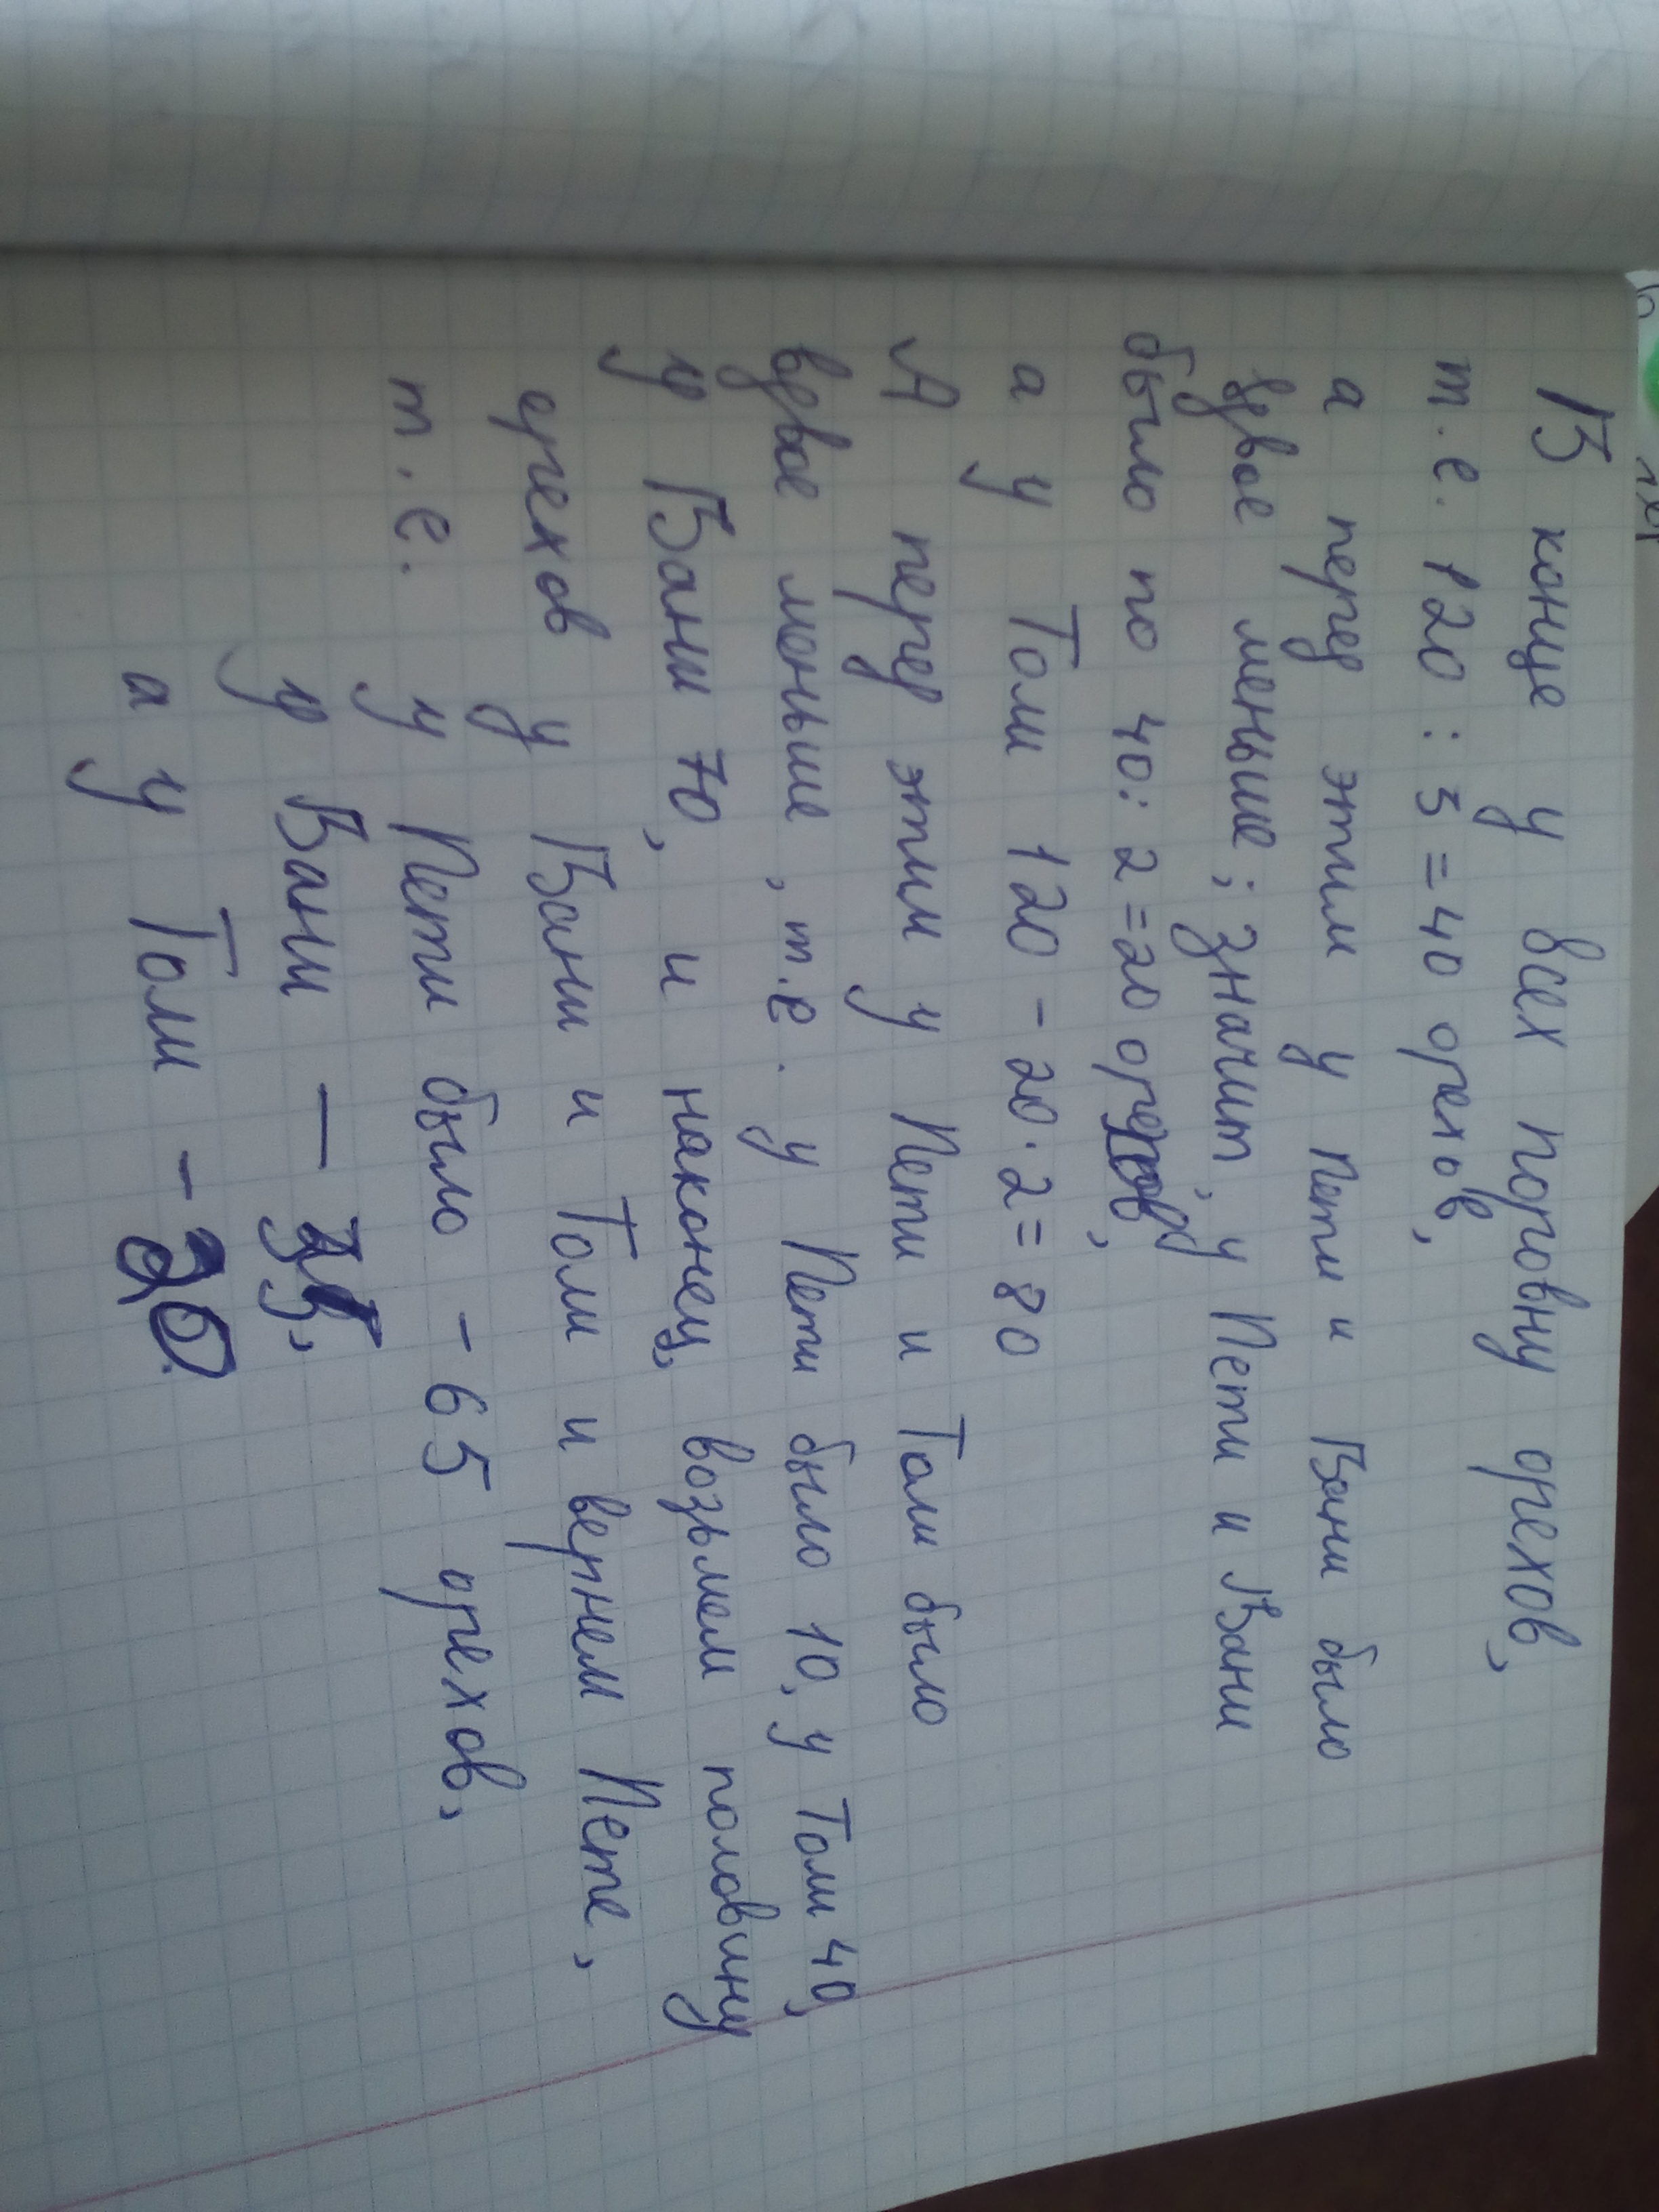 В конце у всех поровну орехов,
т.е. 120 : 3 = 40 орехов,
а перед этим у Пети и Вани было
вдвое меньше; значит, у Пети и Вани
было по 40 : 2 = 20 орехов,
а у Толи 120 - 20 · 2 = 80
А перед этим у Пети и Толи было
вдвое меньше, т.е. у Пети было 10, у Толи 40,
у Вани 70, и наконец, возьмем половину
орехов у Вани и Толи и вернем Пете,
т.е. у Пети было - 65 орехов,
у Вани — 35,
а у Толи - 20.